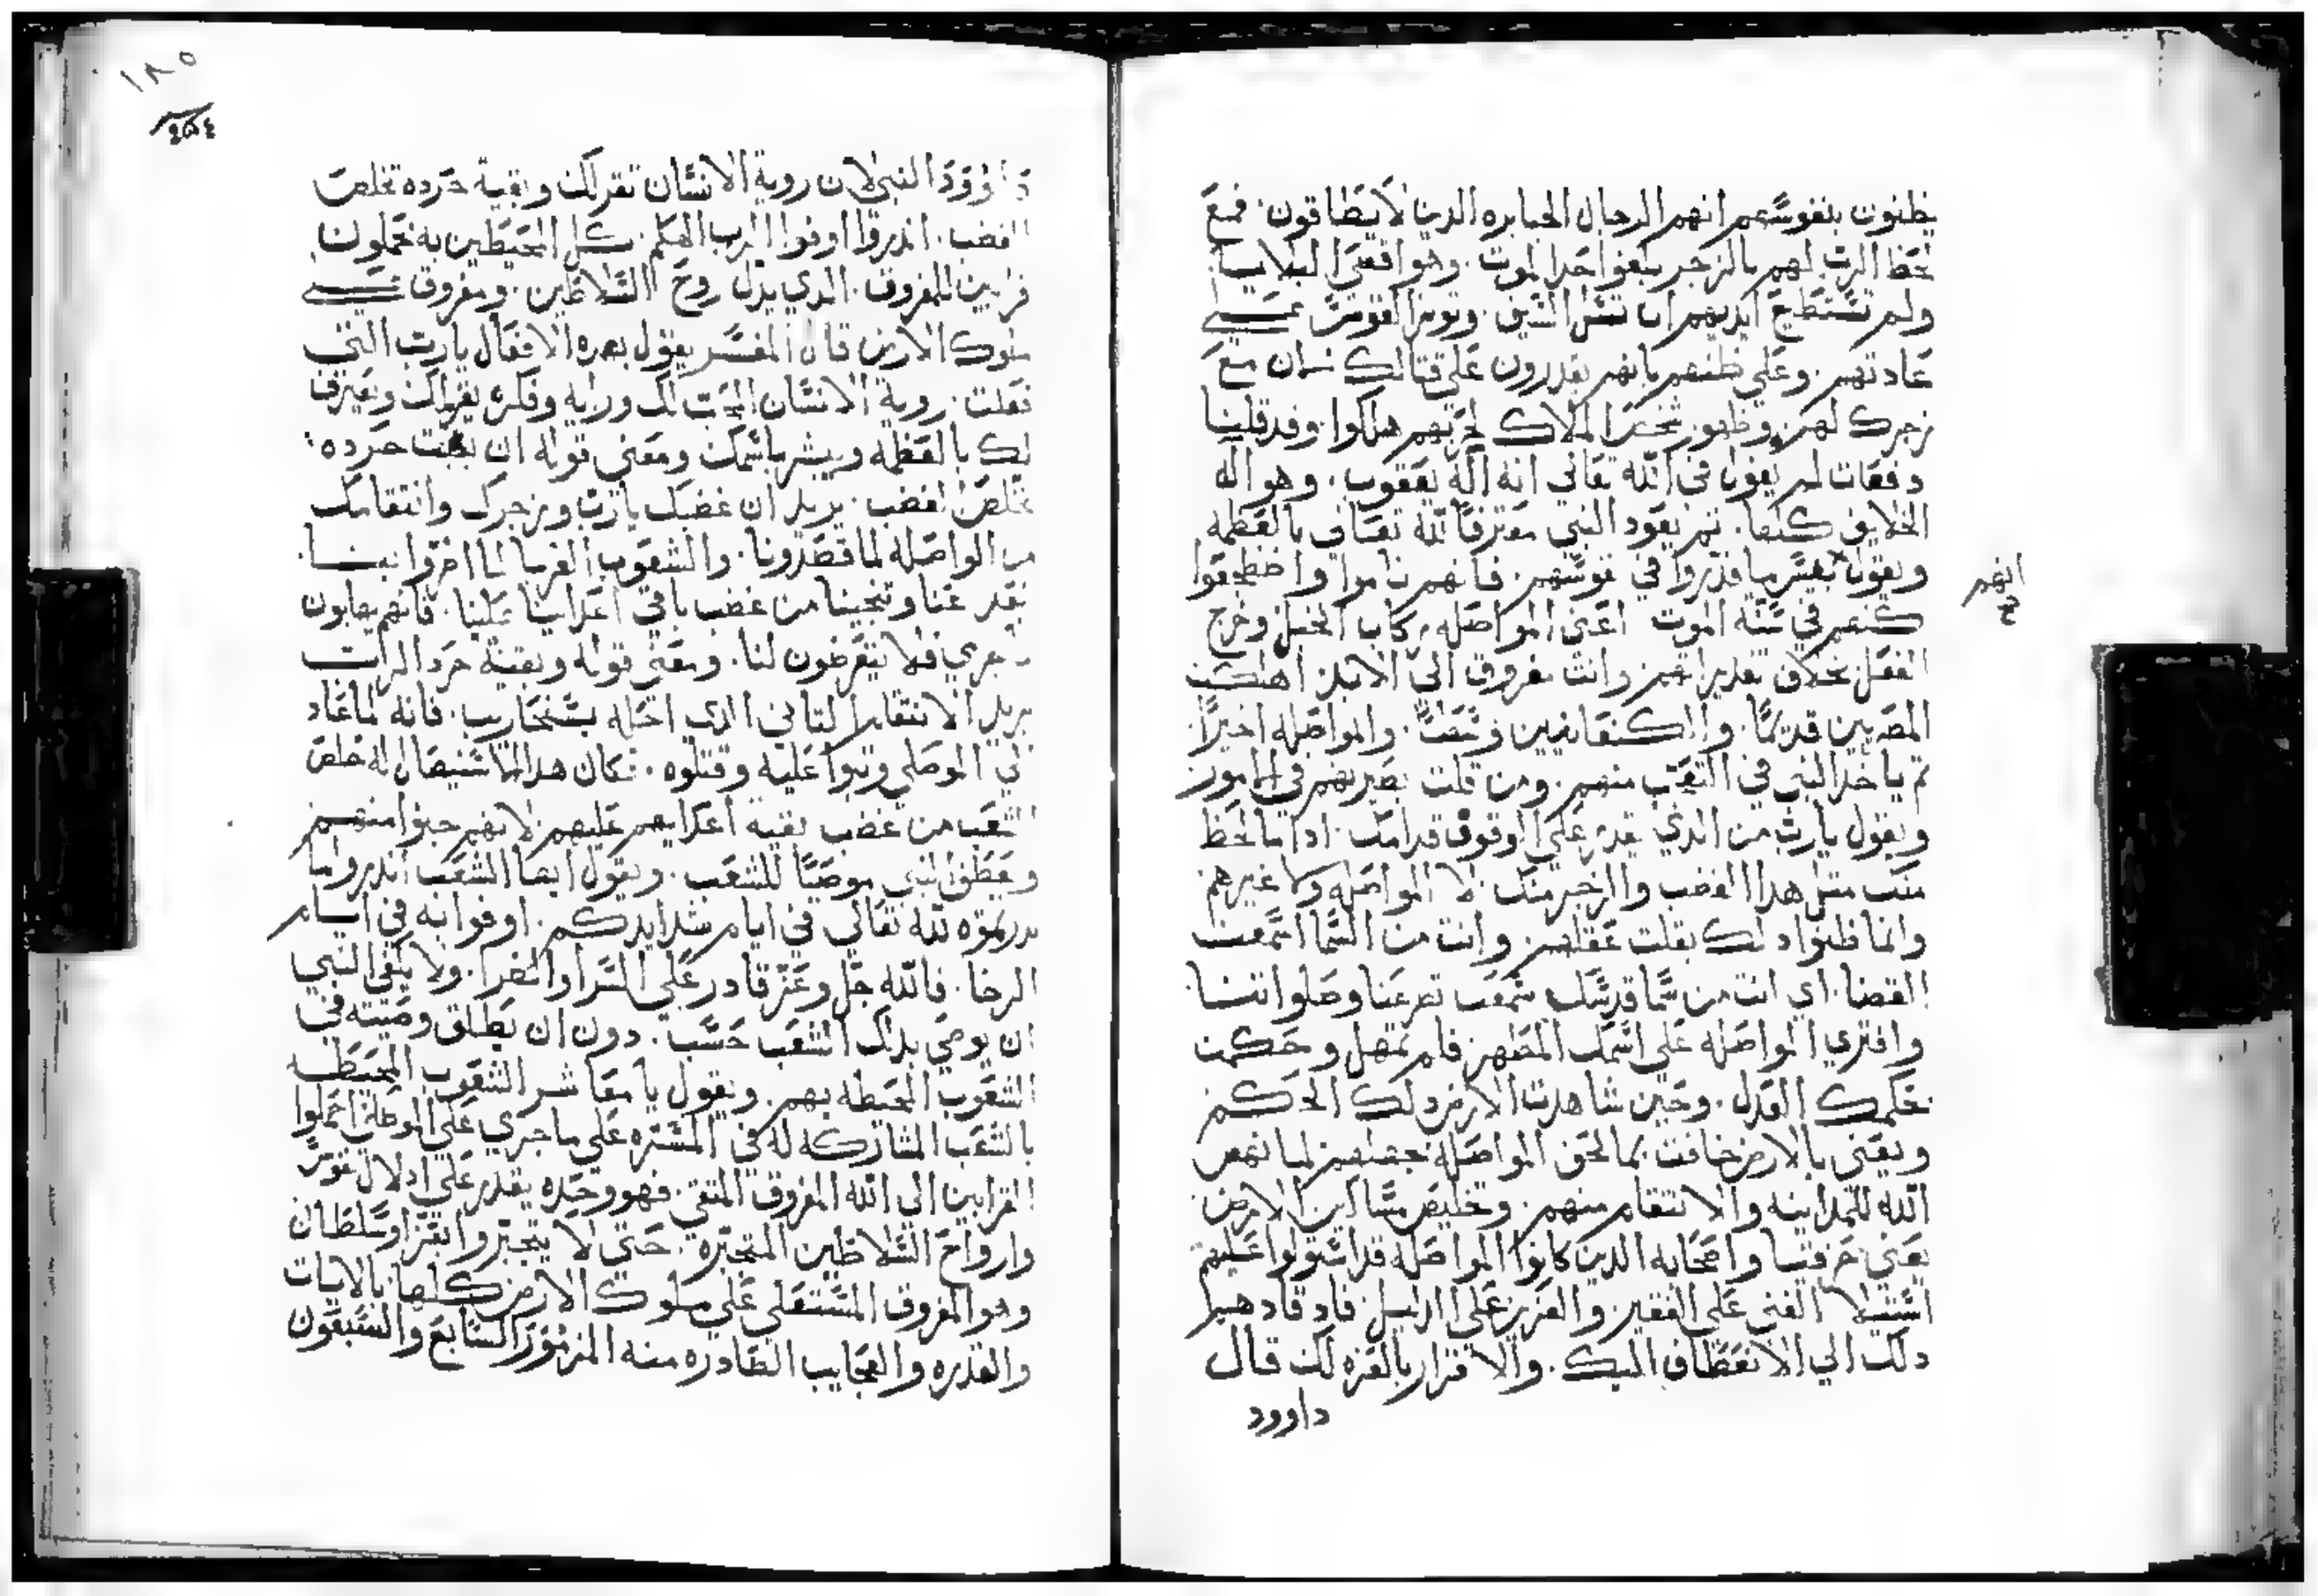 يظنون بنفوسهم انهم الرجال الجبابره الدين لا يطاقون. فمع
لحظ الرب لهم بالزجر بلغوا حد الموت. وهو اقصى البلايا
ولم تستطيع ايديهم ان تشد السيف. وتوتر القوس على
عادتهم. وعلى ظنهم بانهم يقدرون على قتالك فان مع
زجرك لهم. وظهور الملاك لحربهم هلكوا. وقد قلنا
دفعات لم يقول في الله تعالى انه اله يعقوب. وهو اله
الخلايق كلها. ثم يعود النبي معترفا لله تعالى بالعظمه
ويقول بعشر ما قدروا في نفوسهم. فانهم ناموا واضطجعوا
انهم
كلهم في سنة الموت اعني المواصله ركاب الخيل وخرج
الفعل بخلاف تقديراهم وانت مفروق الى الابد اهلكت
المصريين قديما. والكنعانيين وسطا. والمواصله اخيرا.
ثم ياخد النبي في التعجب منهم. ومن قلت بصيرتهم في الامور
ويقول يارب من الذي يقدر على الوقوف قدامك. ادا ما لحظ
منك مثل هدا الغضب والزجر منك. لا المواصله ولا غيرهم
وانما ظنوا دلك بقلت عقلهم. وانت من السما اسمعت
القضا. اي انت من سما قدسك سمعت تضرعنا وصلواتنا.
وافترى المواصله على اسمك المطهر فلم تمهل وحكمت
بحكمك العدل. وحين شاهدت الارض دلك الحكم
ويعني بالارض خافت بما لحق المواصله جميعهم لما نهض
الله للمداينه والانتقام منهم. وتخليص مساكين الارض
يعني حزقيا واصحابه الدين كانوا المواصله قد استولوا عليهم
استيلا الغني على الفقير. والعزيز على الدليل فاد قادهم
دلك الي الانعطاف اليك. والاقرار بالعزه لك قال
داوود
١٨٥
داوود النبي لان روية الانسان تقر لك وبقية حرده تخلص
الغضب. اندروا اوفوا الرب الهكم. كل المحيطين به يحملون
قرابين للمفروق. الدي يدل روح السلاطين. ومفروق على
ملوك الارض قال المفسر يقول بهده الافعال يارب التي
فعلت. روية الانسان المحب لك ورايه وفكره يقر لك ويعترف
لك بالعظمه ويبشر باسمك ومعنى قوله ان بقيت حرده
تخلص الغضب. يريد ان غضبك يارب وزجرك وانتقامك
من الواصله لما قصدونا. والشعوب الغربا لما اضروا بنا.
يقدر عنا وتنجينا من غضب باقي اعداينا علينا. فانهم يهابون
ما جري فلا يتعرضون لنا. ومعنى قوله وبقية حرد الرب
يريد الانتقام الثاني الذي احله بسنحاريب. فانه لما عاد
الى الموصلي وثبوا عليه وقتلوه. فكان هدا الاستيصال له خلص
الشعب من غضب بقية اعدايهم عليهم. لانهم جبنوا منهم
وعطف النبي موصيا للشعب. ويقول ايها الشعب اندروا ما
ندرتموه لله تعالى في ايام شدايدكم. اوفوا به في ايام
الرخا. فالله جل وعز قادر على السرا والضرا. ولا يكفي النبي
ان يوصي بدلك الشعب حسب. دون ان يطلق وصيته في
الشعوب المحيطه بهم. ويقول يا معاشر الشعوب المحيطه
بالشعب المشاركه له في المسره على ما جري علي الموصلي احملوا
القرابين الى الله المفروق المتقي. فهو وحده يقدر علي ادلال نفوس
وارواح السلاطين المتجبره. حتى لا يتجبروا بعز وسلطان
وهو المفروق المستعلي علي ملوك الارض كلها. بالايات
والقدره والعجايب الظاهره منه المزمور السابع والسبعون